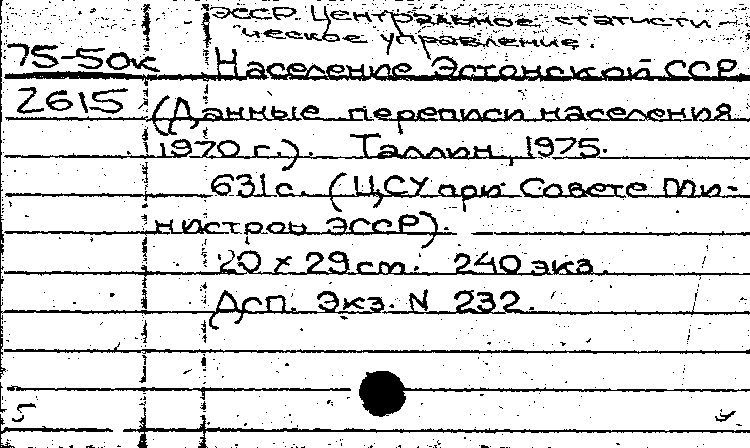 ЭССР. Центральное статисти-
ческое управление.
75-50к Население Эстонской ССР
2615 (Данные переписи населения
1970 г.). Таллин, 1975.
631с. (ЦСУ при Совете Ми-
нистров ЭССР).
20 x 29 cm. 240 экз.
Дсп. Экз. N 232.
5